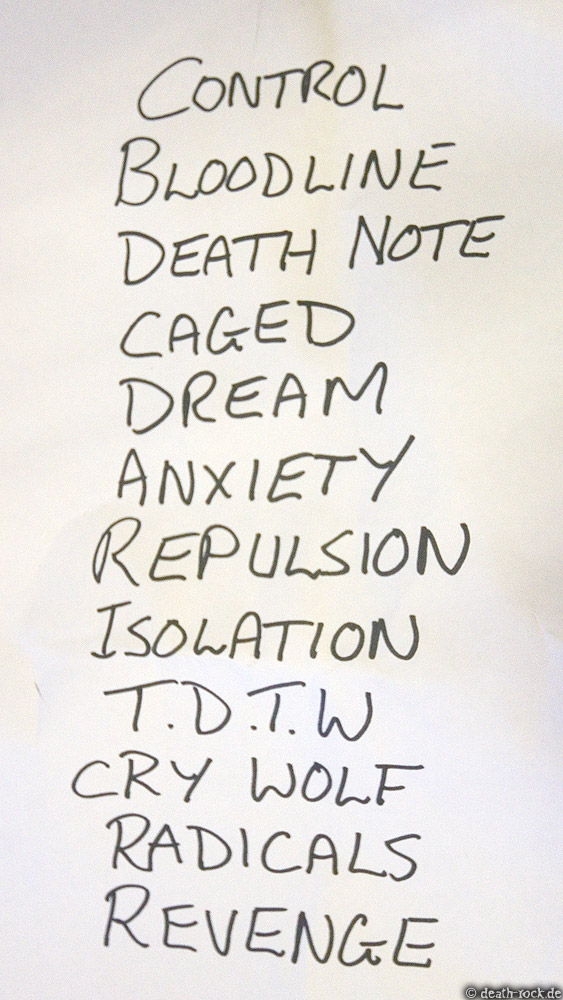 CONTROL
BLOODLINE
DEATH NOTE
CAGED
DREAM
ANXIETY
REPULSION
ISOLATION
T.D.T.W
CRY WOLF
RADICALS
REVENGE
© death-rock.de